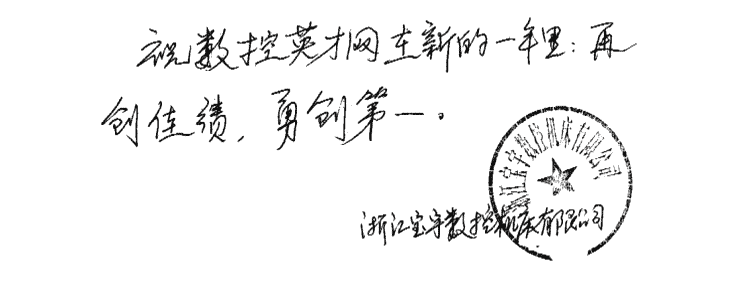 祝数控英才网在新的一年里：再
创佳绩，勇创第一。
浙江宝宇数控机床有限公司
浙江宝宇数控机床有限公司